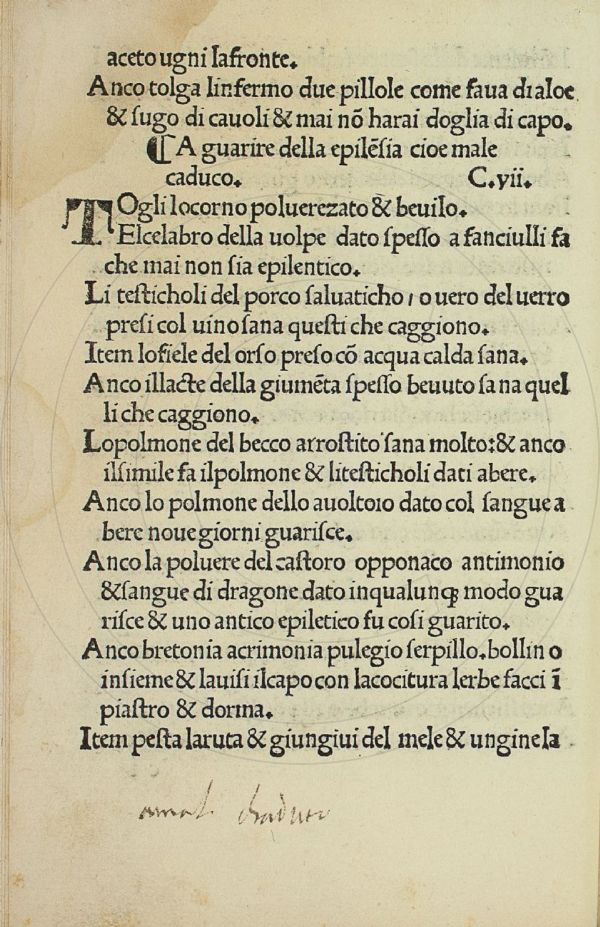 aceto ugni lafronte.
Anco tolga linfermo due pillole come faua di aloe
& sugo di cauoli & mai nō harai doglia di capo.
¶ A guarire della epilēsia cioe male
caduco. C.vii.
TOgli locorno poluerezato & beuilo.
Elcelabro della uolpe dato spesso a fanciulli fa
che mai non sia epilentico.
Li testicholi del porco saluaticho, o uero del uerro
presi col uino sana questi che caggiono.
Item lofiele del orso preso cō acqua calda sana.
Anco illacte della giumēta spesso beuuto sana quel
li che caggiono.
Lopolmone del becco arrostito sana molto: & anco
ilsimile fa ilpolmone & litesticholi dati abere.
Anco lo polmone dello auoltoio dato col sangue a
bere noue giorni guarisce.
Anco la poluere del castoro opponaco antimonio
& sangue di dragone dato inqualunqꝫ modo gua
risce & uno antico epiletico fu cosi guarito.
Anco bretonia acrimonia pulegio serpillo. bollino
insieme & lauisi ilcapo con lacocitura lerbe facci ī
piastro & dorma.
Item pesta laruta & giungiui del mele & ungine la